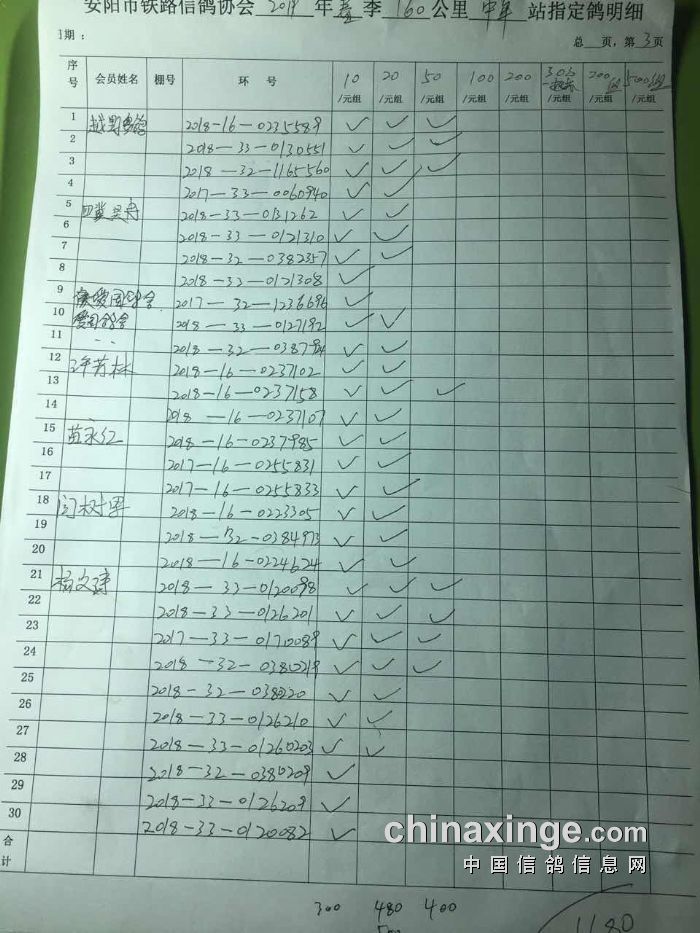 安阳市铁路信鸽协会 2018 年 春 季 160 公里 站指定鸽明细
期： 总 页，第 3 页
序号 会员姓名 棚号 环号 10/元组 20/元组 50/元组 100/元组 200/元组 /元组 200/元组 /元组
1 2018-16-0235589 ✓ ✓ ✓
2 2018-33-0130551 ✓ ✓ ✓
3 2018-32-1165560 ✓ ✓ ✓
4 2017-33-0060940 ✓ ✓
5 2018-33-0131262 ✓ ✓
6 2018-33-0121310 ✓ ✓
7 2018-32-0382357 ✓ ✓
8 2018-33-0121308 ✓
9 2017-32-1236696 ✓
10 爱国鸽舍 2018-33-0127192 ✓ ✓
11 2018-32-0387794 ✓ ✓
12 许芳林 2018-16-0237102 ✓ ✓
13 2018-16-0237158 ✓ ✓ ✓
14 2018-16-0237107 ✓ ✓
15 苗永红 2018-16-0237985 ✓ ✓
16 2017-16-0255831 ✓ ✓
17 2017-16-0255833 ✓ ✓
18 2018-16-0223305 ✓ ✓
19 2018-32-0384973 ✓ ✓
20 2018-16-0224624 ✓ ✓
21 杨文 2018-33-0120098 ✓ ✓ ✓
22 2018-33-0126201 ✓ ✓ ✓
23 2017-33-0170089 ✓ ✓ ✓
24 2018-32-0380219 ✓ ✓ ✓
25 2018-32-038220 ✓ ✓
26 2018-33-0126210 ✓ ✓
27 2018-33-01260203 ✓ ✓
28 2018-32-0380209 ✓
29 2018-33-0126209 ✓
30 2018-33-0120082 ✓
合计
chinaxinge.com
中国信鸽信息网
300 480 400
1180